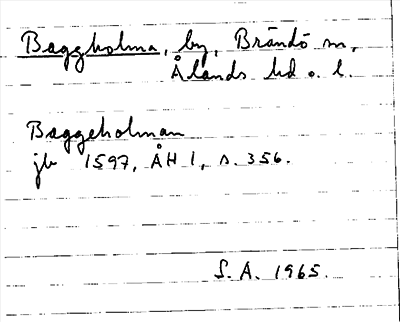 Baggholma, by, Brändö sn,
Ålands hd o. l.
Baggeholman
jb 1597, ÅH 1, s. 356.
S. A. 1965.